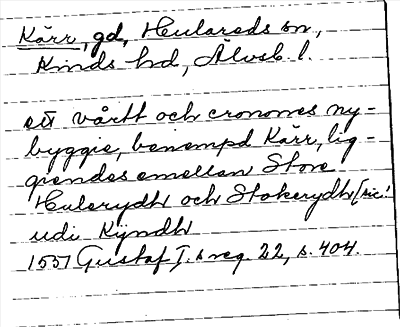 Kärr, gd, Hulareds sn,
Kinds hd, Älvsb l.
ett vårtt och cronones ny-
byggie, benempd Kärr, lig-
giendes emellan Store
Hulerydh och Stokerydh [sic!
udi Kijndh
1551 Gustaf I:s reg. 22, s. 404.